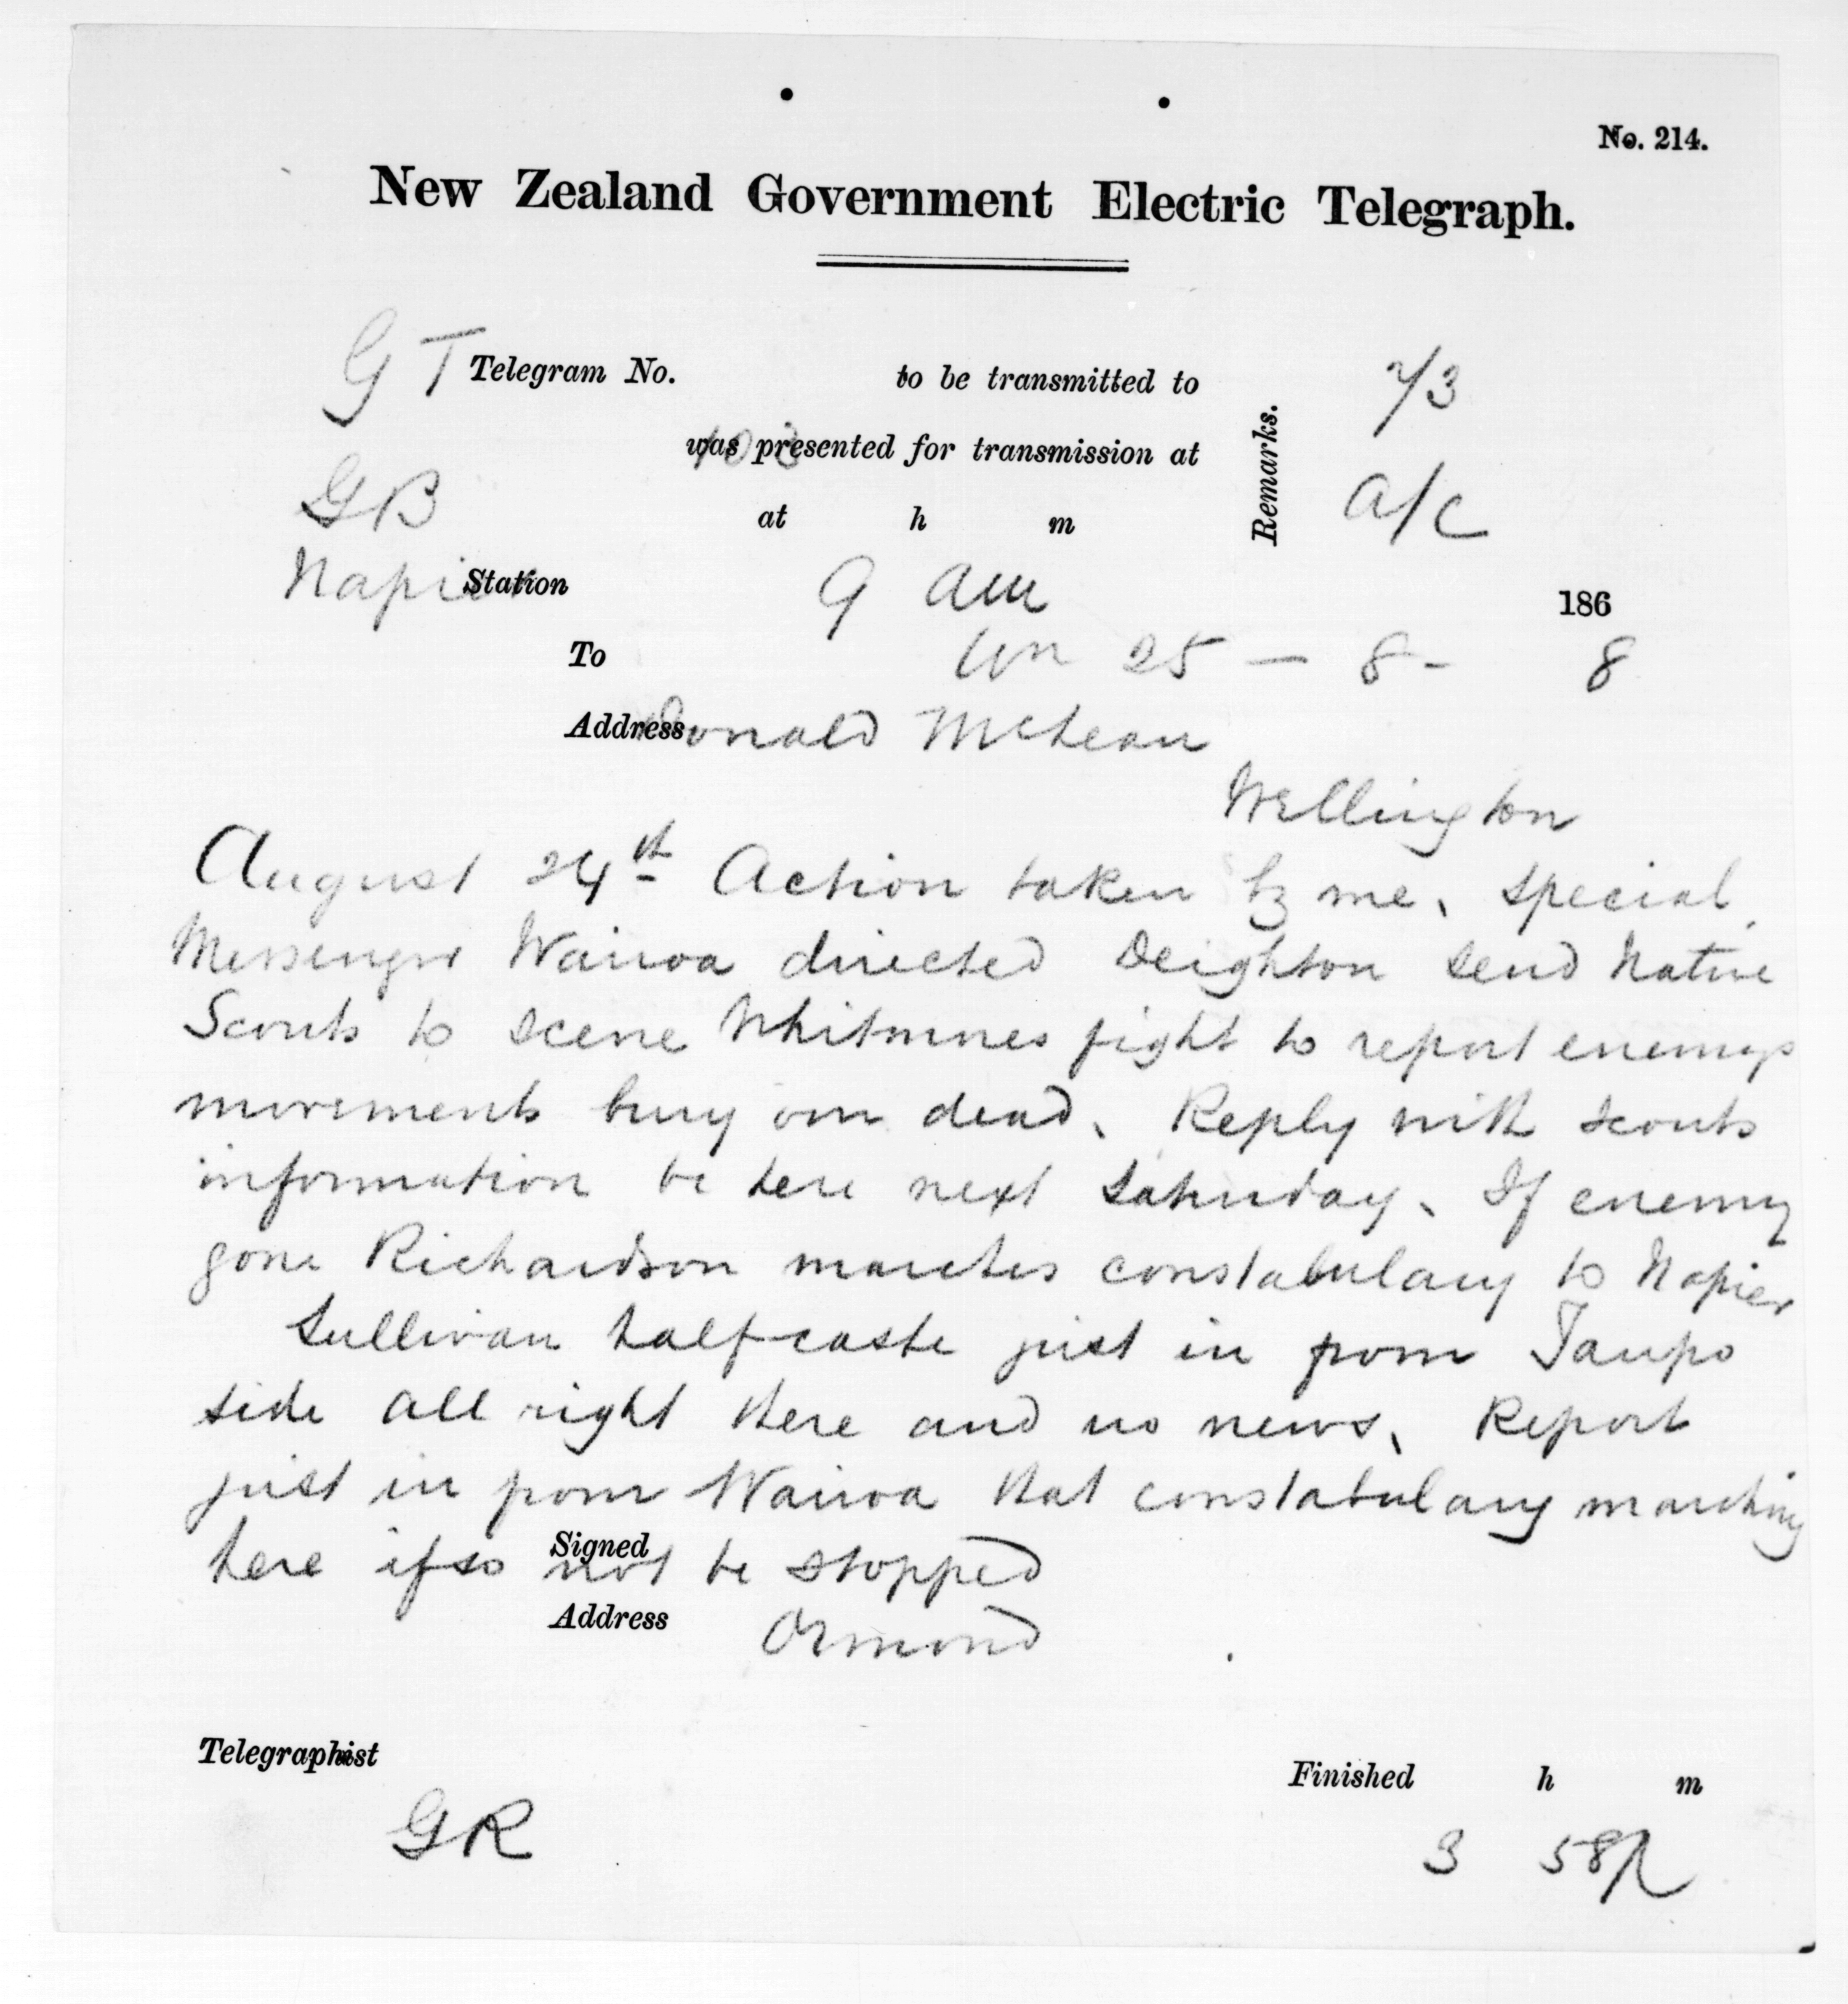 No. 214.
New Zealand Government Electric Telegraph.
G T Telegram No. to be transmitted to
was presented for transmission at
Remarks.
GB at h m a/c
Napier Station 9 am 186
To 25 - 8 - 8
Address Donald McLean
Wellington
August 24th Action taken by me, special
Messenger Wairoa directed Deighton send Native
Scouts to scene Whitmores fight to report enemys
movements bury our dead, Reply with scouts
information be here next Saturday, If enemy
gone Richardson marches constabulary to Napier
Sullivan halfcaste just in from Taupo
side all right there and no news, Report
just in from Wairoa that constabulary marching
here if so not be stopped
Signed
Address Ormond
Telegraphist Finished h m
GR 3 58p